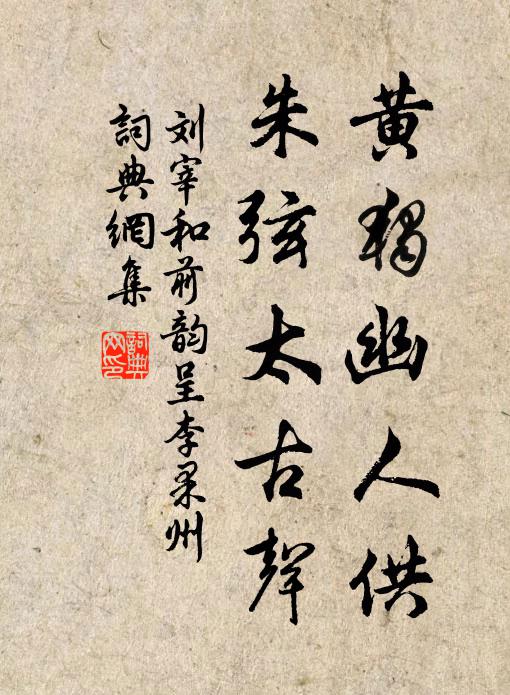 黄獨幽人供
朱弦太古聲
刘宰和前韵呈李果州
詞典網集
詞典网印